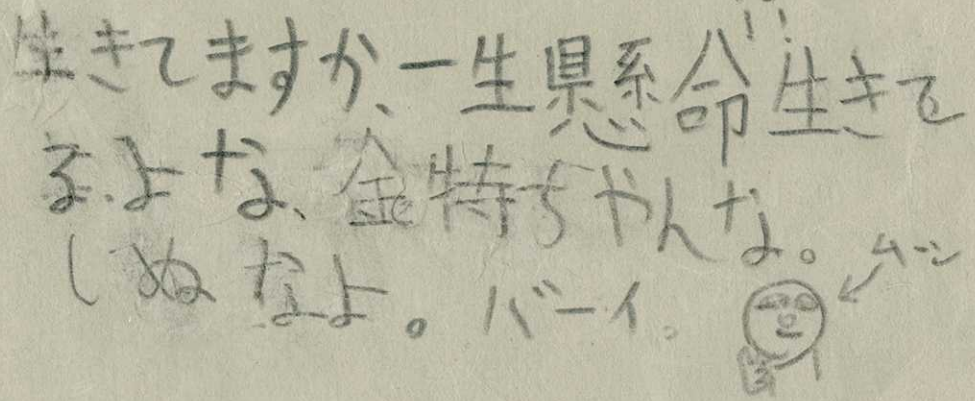 生きてますか、一生懸命生きて
るよな、金持ちやんな。
しぬなよ。バーイ。
ムーン